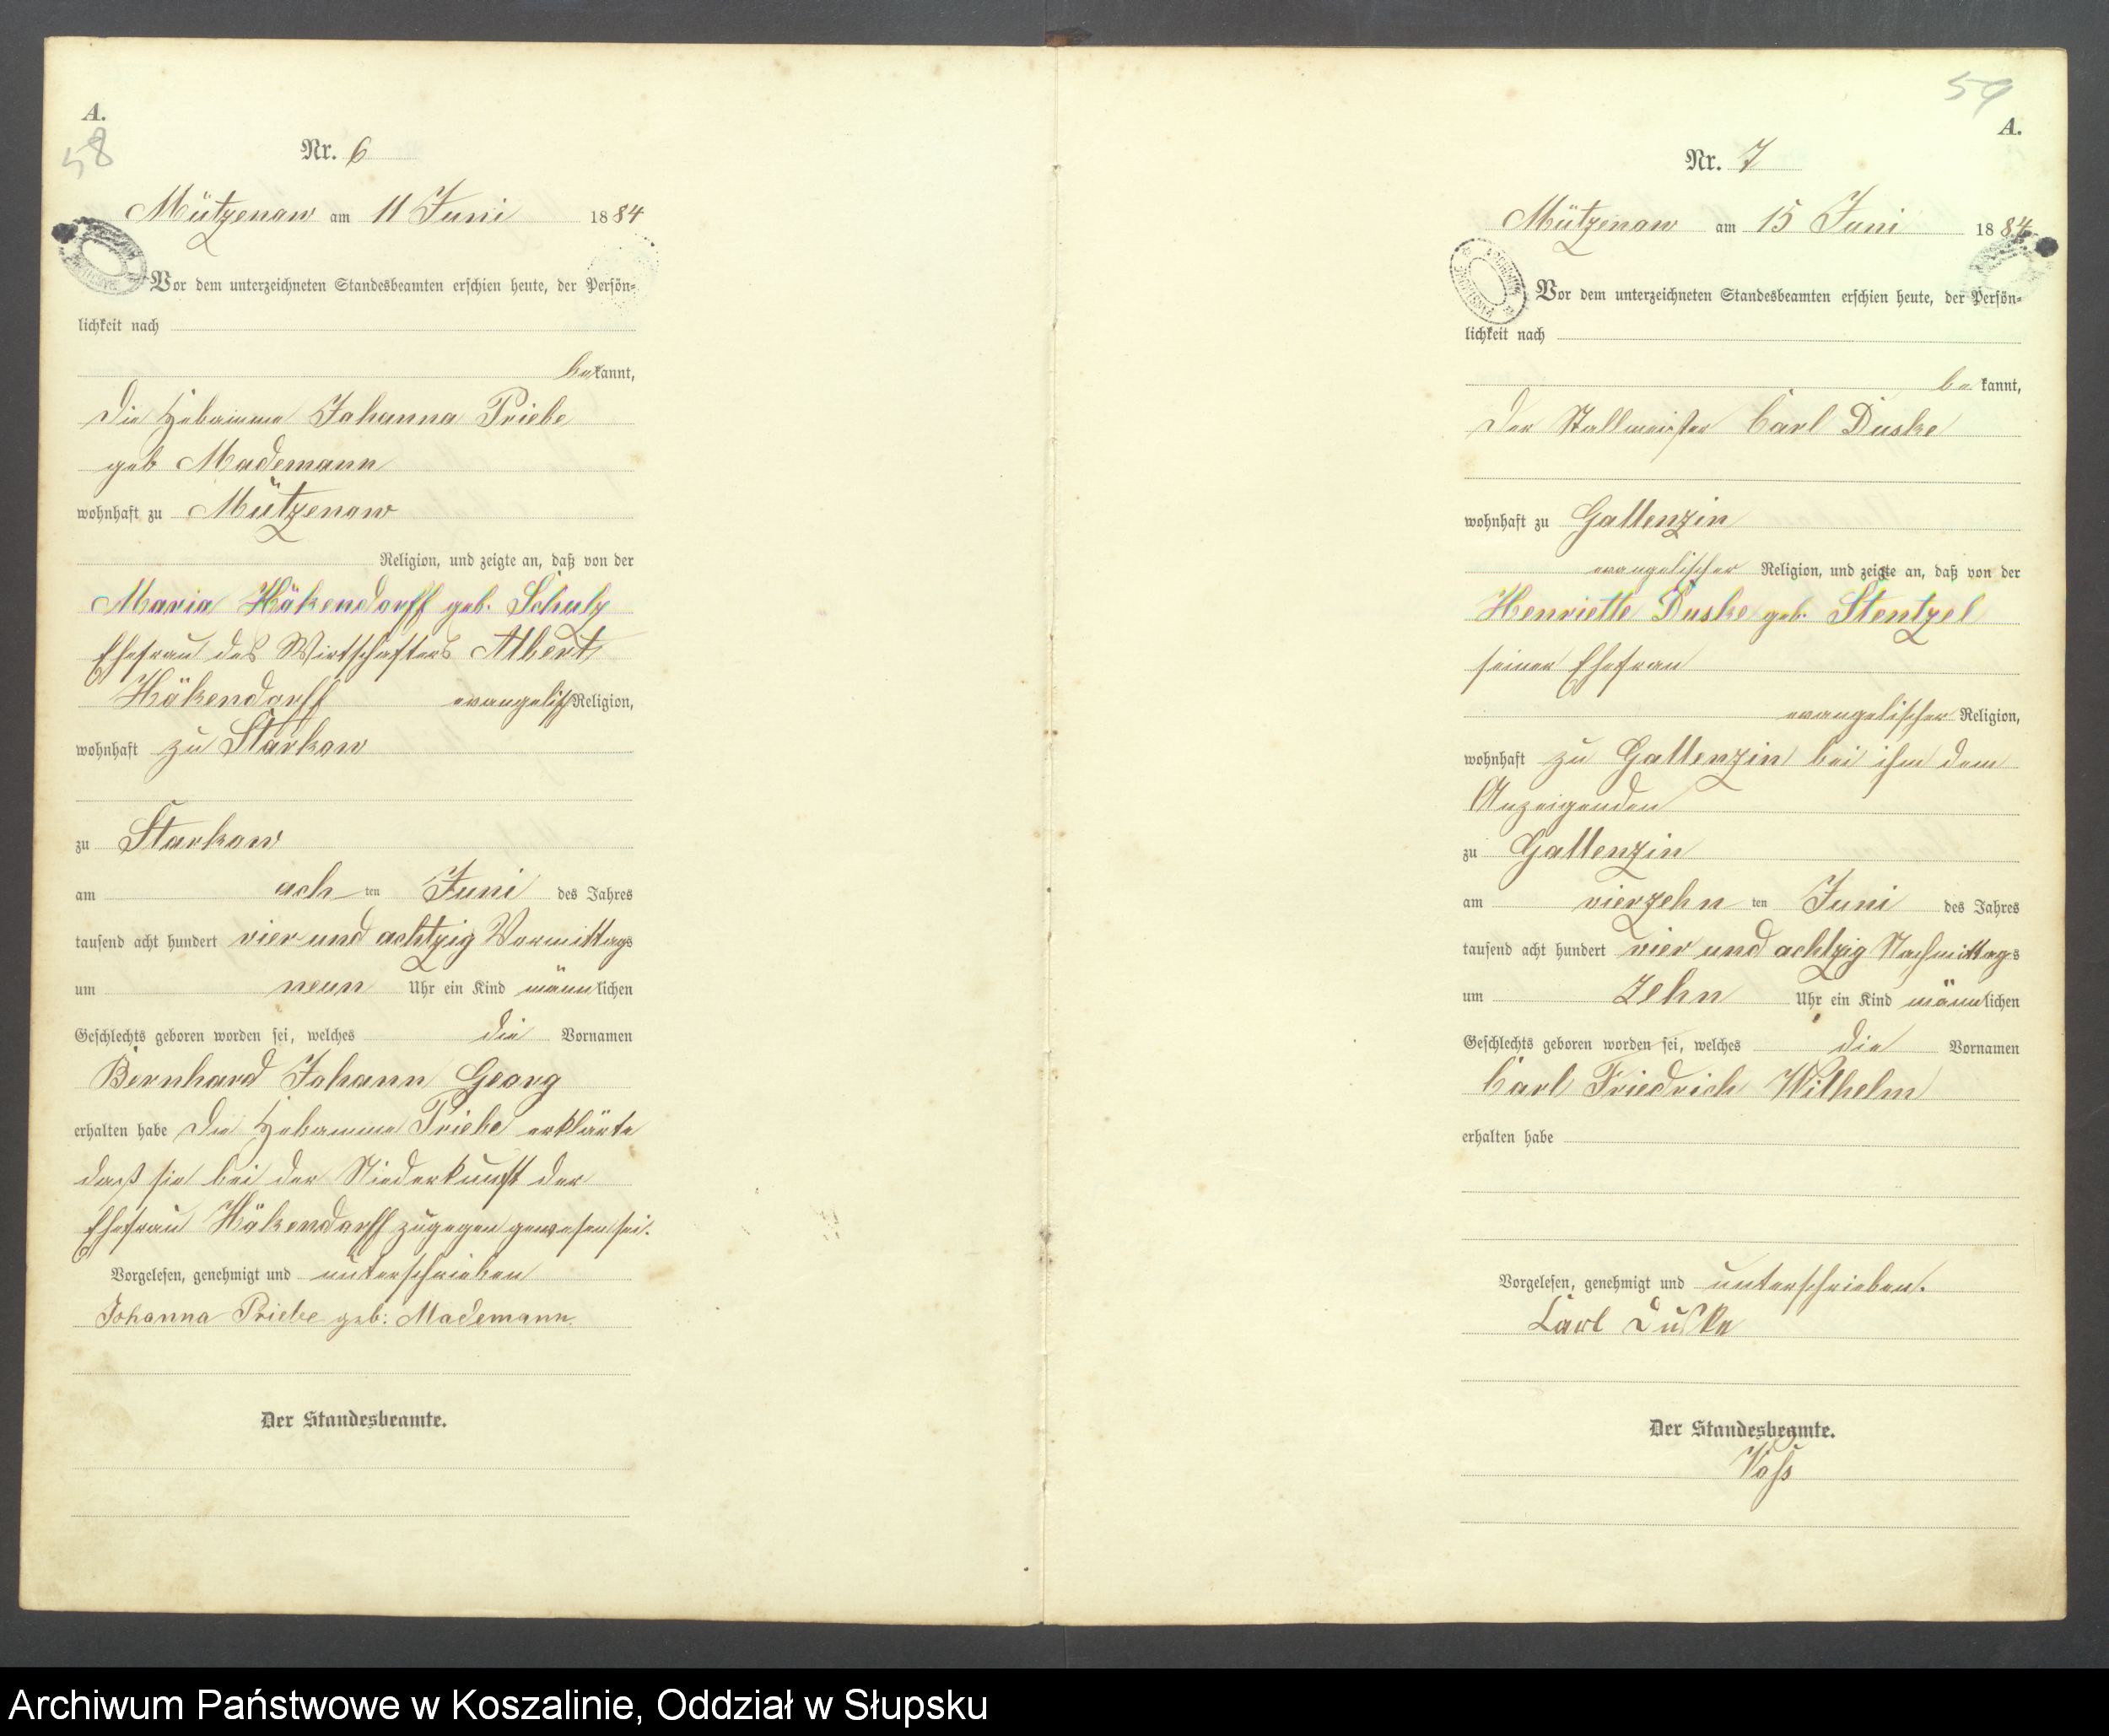 A.
58
Nr. 6
Mützenow am 11 Juni 1884
Vor dem unterzeichneten Standesbeamten erschien heute, der Persön=
lichkeit nach
bekannt,
die Hebamme Johanna Priebe
geb Mademann
wohnhaft zu Mützenow
Religion, und zeigte an, daß von der
Maria Häkendorff geb. Schulz
Ehefrau des Wirtschafters Albert
Häkendorff evangelisch Religion,
wohnhaft zu Starkow
zu Starkow
am ach ten Juni des Jahres
tausend acht hundert vier und achtzig Vormittags
um neun Uhr ein Kind männlichen
Geschlechts geboren worden sei, welches die Vornamen
Bernhard Johann Georg
erhalten habe Die Hebamme Priebe erklärte
daß sie bei der Niederkunft der
Ehefrau Häkendorff zugegen gewesen sei.
Vorgelesen, genehmigt und unterschrieben
Johanna Priebe geb: Mademann.
Der Standesbeamte.
59
A.
Nr. 7
Mützenow am 15 Juni 1884
Vor dem unterzeichneten Standesbeamten erschien heute, der Persön=
lichkeit nach
bekannt,
der Stallmeister Carl Duske
wohnhaft zu Gallenzin
evangelischer Religion, und zeigte an, daß von der
Henriette Duske geb. Stentzel
seiner Ehefrau
evangelischer Religion,
wohnhaft zu Gallenzin bei ihm dem
Anzeigenden
zu Gallenzin
am vierzehn ten Juni des Jahres
tausend acht hundert vier und achtzig Nachmittags
um zehn Uhr ein Kind männlichen
Geschlechts geboren worden sei, welches die Vornamen
Carl Friedrich Wilhelm
erhalten habe
Vorgelesen, genehmigt und unterschrieben.
Carl Duske
Der Standesbeamte.
Voß
Archiwum Państwowe w Koszalinie, Oddział w Słupsku